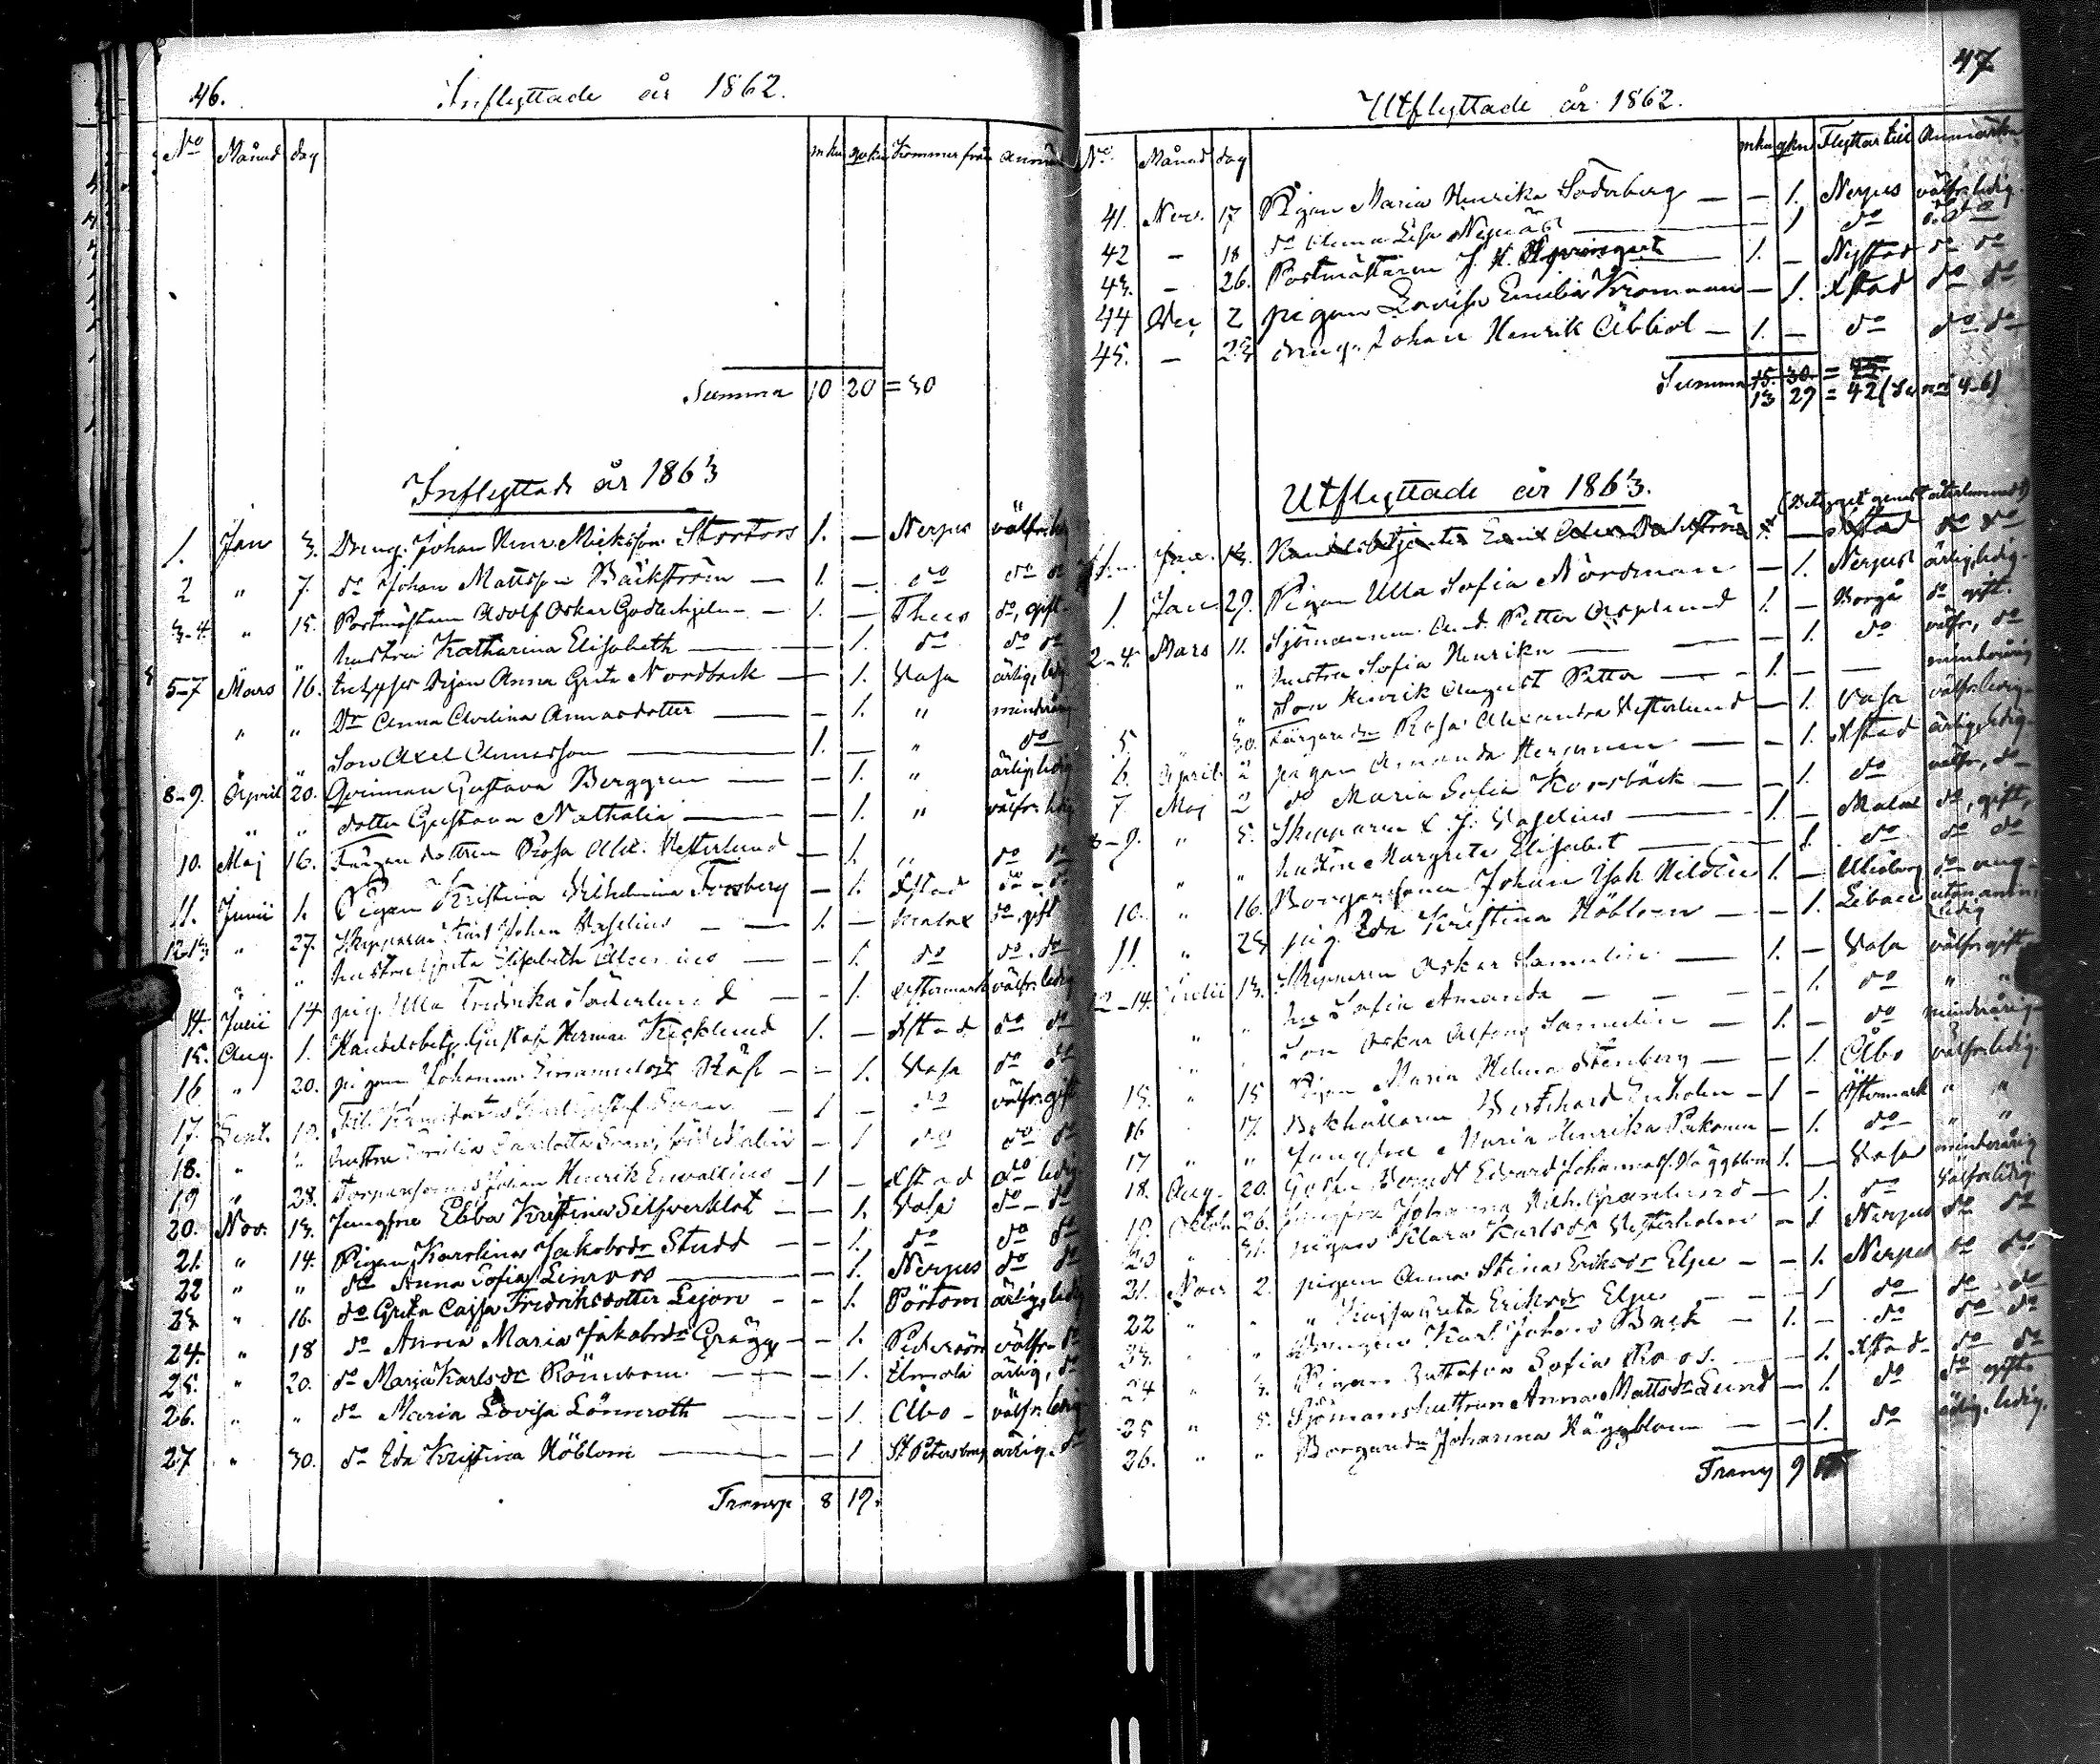 46.
Inflyttade år 1862.
No Månad dag mkn qvkn Kommer från
Summa 10 20 = 30
Inflyttade år 1863
1. Jan 3. Dreng. Johan Henr. Mickelsson Stortors 1. — Nerpes välfr. ledig
2 " 7. do Johan Mattsson Bäckström — 1. — do do do
3-4 " 15. Postmästaren Adolf Oskar — 1. — do, gift
hustrun Katharina Elisabeth — 1. do do do
5-7 Mars 16. Pigan Anna Greta Nordback — 1. Vasa ärlig, ledig
" " Dr Anna Carolina Annasdotter — — 1. " minderårig
Son Axel Annasson — 1. — " do
8-9. April 20. Qvinnan Gustava Berggren — — 1. " ärlig, ledig
" " dotter Gustava Nathalia — — 1. " välfr. ledig
10. Maj 16. dottren Rosa Alex. Vesterlund — 1. " do do
11. Junii 1. Pigan Kristina Wilhelmina Forsberg — 1. Xstad do - do
12-13 " 27. Skepparen Karl Johan Vaselius — 1. — Malax do, gift
" " hustru Greta Elisabeth — — 1. do do. do
14. Julii 14 pig. Ulla Fredrika Söderlund — - 1. Östermark välfr. ledig
15. Aug. 1. Handelsbetj. Gustaf Herman Hecklund 1. — Xstad do do
16 " 20. pigan Johanna — - 1. Vasa do do
17. Sept. 10. — 1 — do välfr. gift
18. " " hustru Emilia Charlotta — 1 do do do
19 " 28. Johan Henrik Envallius — 1 — Xstad do ledig
20. Nov. 13. Jungfru Ebba Kristina Silfverklot — - 1. Vasa do - do
21. " 14. Pigan Karolina Jakobsdr Studd — - 1. do do do
22 " " do Anna Sofia — - 1. Nerpes do do
23 " 16. do Greta Cajsa Fredriksdotter Lejon — - 1. Pörtom ärlig, ledig
24. " 18 do Anna Maria Jakobsdr Grägg — - 1. Pedersöre välfr. do
25. " 20. do Maria Karlsdr — - 1. Ilmola ärlig, do
26. " " do Maria Lovisa Lönnroth — - 1. Åbo - välfr. ledig
27 " 30. do Ida Kristina Höblom — - 1 St Petersburg ärlig. do
Transp 8 19.
47
Utflyttade år 1862.
No. Månad dag mkn qkn Flyttar till Anmärkn
41. Nov. 17 Pigan Maria Henrika Söderberg — - 1. Nerpes välfr. ledig
42 - 18 do Lisa — 1 do do do
43. - 26. Postmästaren J. H. — 1. - Nystad do do
44 Dec 2 pigan Lovisa Emilia Kroman — 1. Xstad do do
45. - 23 dreng. Johan Henrik — 1. — do do do
Summa 15. 30. = 45.
13 29 = 42
Utflyttade år 1863.
(Betyget genast återlemnadt)
Jan. 13. Handelsbetjenten 1. — Xstad do do
1 Jan. 29. Pigan Ulla Sofia Nordman — 1. Nerpes ärlig, ledig
2-4. Mars 11. Sjömannen And. Petter Asplund 1. — Borgå do gift.
" hustru Sofia Henrika — — 1. do välfr, do
" Son Henrik August Petter — - 1. — — minderårig
5. " 30. Rosa Alexandra Vesterlund — 1. Vasa välfr. ledig
6. April 2 pigan Amanda — - 1. Xstad ärlig, ledig
7 Maj 2 do Maria Sofia Korsbäck — 1. do välfr, do
8-9. " 5. Skepparen C. J. Vaselius — 1. — Malax do, gift,
" " hustru Margreta Elisabet — 1. do do do
10. " 16. Johan Isak Hildén 1. — Uleåborg do ung.
11. " 23 pig. Ida Kristina Höblom — - 1. Libau utan anm. ledig
12-14. Julii 13. Skepparen Oskar Samulin — 1. — Vasa välfr gift
" " hu Sofia Amanda — — - 1. do " "
" " Son Oskar Alfons Samulin — 1. — do minderårig
15. " 15 Pigan Maria Helena Stenberg — - 1. Åbo välfr. ledig
16 " 17. Bokhållaren — 1 — Östermark " "
17 " " Jungfru Maria Henrika — 1. do "
18. Aug. 20. Gossen Berndt Edvard Johannesson Häggblom 1. — Vasa minderårig
19. Oktob. 26. Jungfru Johanna Wilh. Grönlund — 1. do Välfr. ledig
20 " 31. pigan Klara Karlsdr Vesterholm — 1. Nerpes do do
21. Nov 2. pigan Anna Stina Eriksdr Elpe — - 1. Nerpes do do
22 " " " Kajsa Greta Eriksdr Elpe — - 1 do do do
23. " " Drengen Karl Johan Back — 1. — do do do
24 " 3. Pigan Gustava Sofia Roos. — 1. Xstad do do
25 " 5. Sjömanshustrun Anna Mattsdr Lund — 1. do do gift.
26. " " Johanna Häggblom — — 1. do ärlig. ledig.
Transp 9